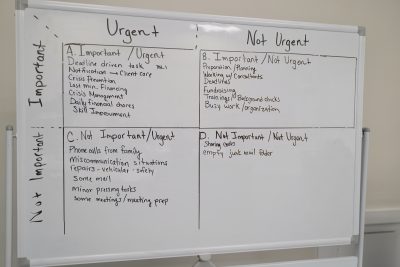 Urgent
Not Urgent
Important
Not Important
A. Important / Urgent
Deadline driven task
Notification → Client care
Crisis Prevention
Last min. Financing
Crisis Management
Daily financial chores
Skill Improvement
B. Important / Not Urgent
Preparation / Planning
Working w/ Consultants
Deadlines
Fundraising
Trainings / Background checks
Busy work / organization
C. Not Important / Urgent
Phone calls from family
miscommunication situations
repairs - vehicular - safety
some mail
minor pressing tasks
some meetings / meeting prep
D. Not Important / Not Urgent
Sharing
empty junk mail folder